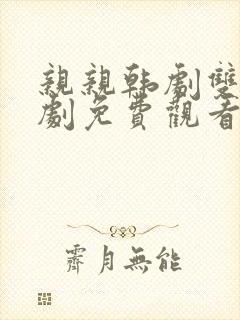 親親韩劇雙
劇免費觀看
霽月無能